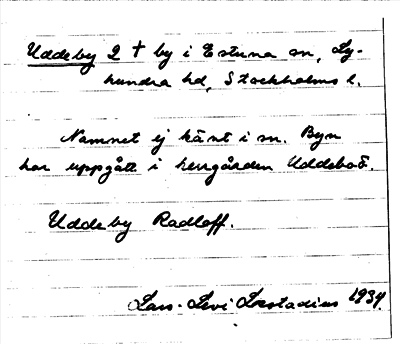 Uddeby 2 † by i Estuna sn, Ly-
hundra hd, Stockholms l.
Namnet ej känt i sn. Byn
har uppgått i herrgården Uddboö.
Uddeby Radloff.
Lars-Levi Læstadius 1934.